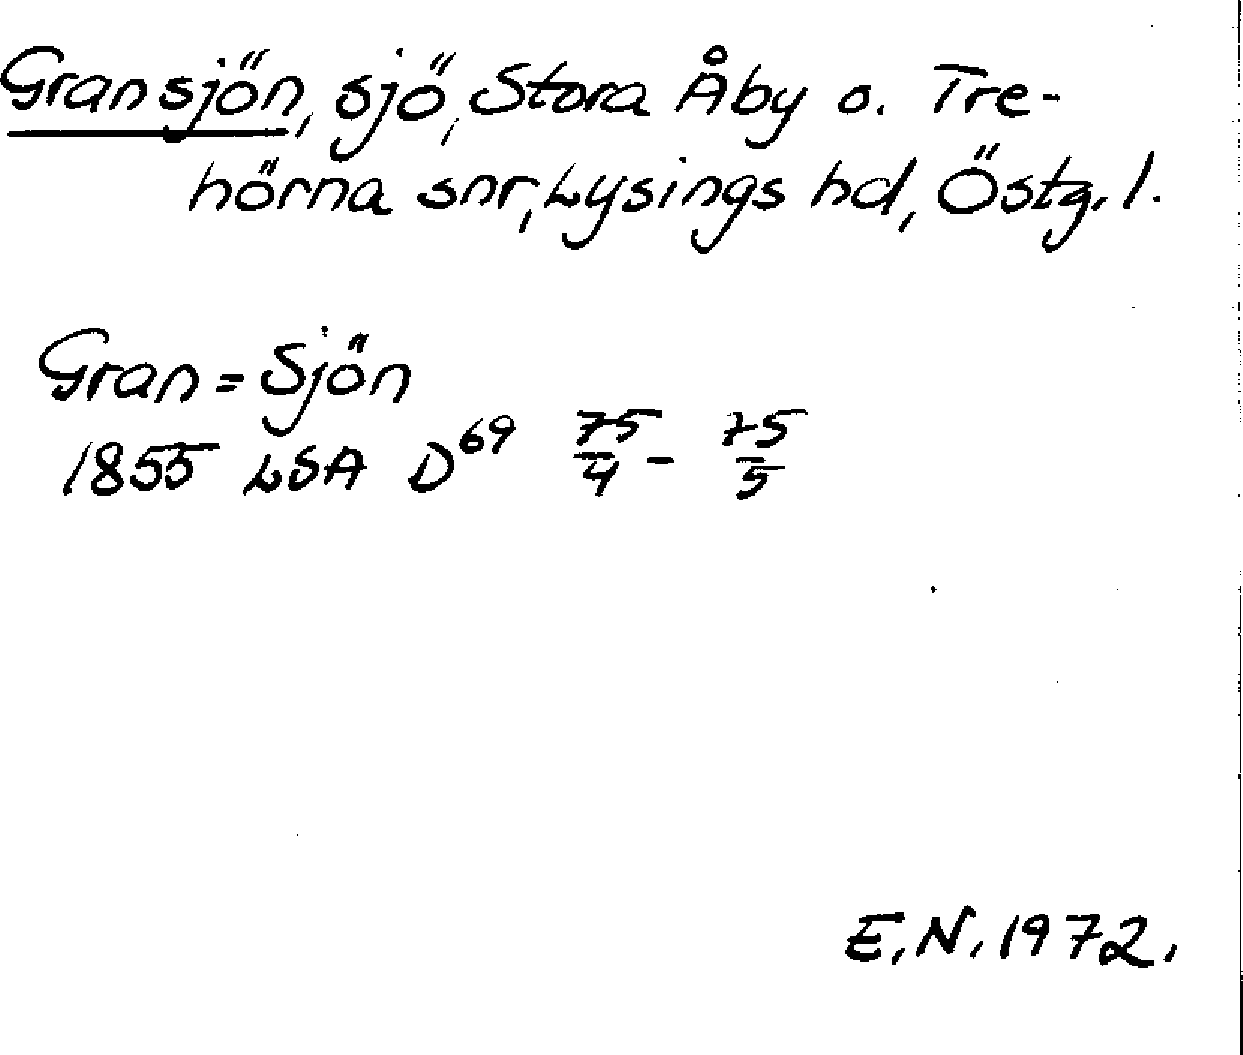 Gransjön, sjö, Stora Åby o. Tre-
hörna snr, Lysings hd, Östg. l.
Gran=Sjön
1855 LSA D⁶⁹ 75/4 - 75/5
E.N. 1972.